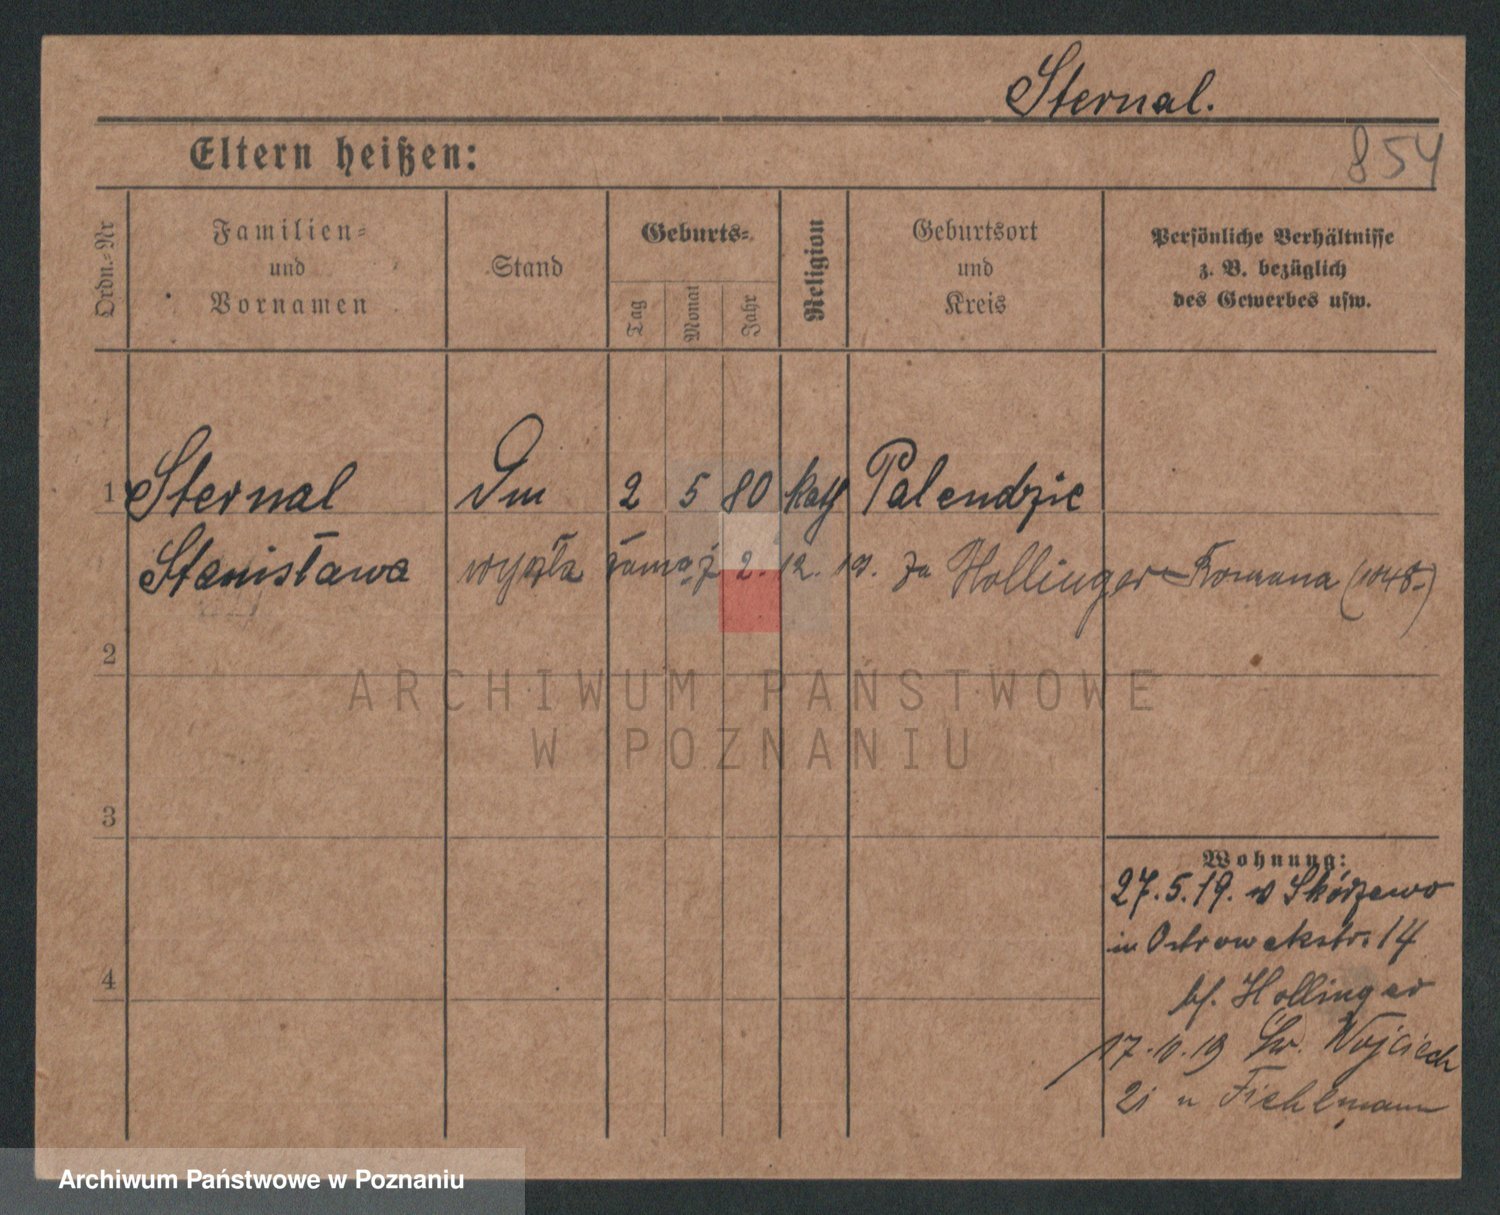 Sternal.
854
Eltern heißen:
Ordn.-Nr
Familien-
und
Vornamen
Stand
Geburts-
Tag
Monat
Jahr
Religion
Geburtsort
und
Kreis
Persönliche Verhältnisse
z. B. bezüglich
des Gewerbes usw.
1 Sternal Dm 2 5 80 kath Palendzie
Stanisława wyszła zamąż 2. 12. 19. za Hollinger Romana (1048.)
2
3
4
Wohnung:
27.5.19. w Skórzewo
in Ostrowekstr. 14
bf. Hollinger
17.10.19 Św. Wojciech
21 u Fichlmann
ARCHIWUM PAŃSTWOWE
W POZNANIU
Archiwum Państwowe w Poznaniu